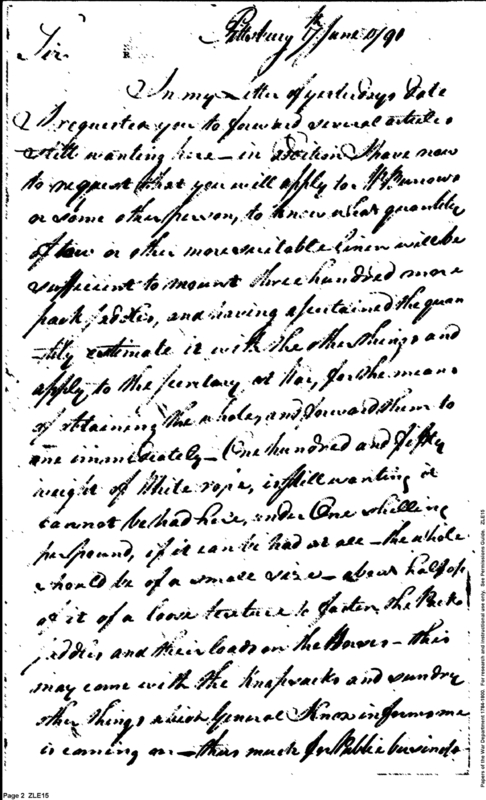 Pittsburg 17th June 1790
Sir
In my Letter of yesterdays date
I requested you to forward several articles
still wanting here – in addition I have now
to request that you will apply to Mr Burrows
or some other person, to know what quantity
of tow or other more suitable linen will be
sufficient to mount three hundred more
pack saddles, and having ascertained the quan
-tity estimate it with the other things and
apply to the secretary at War, for the means
of obtaining the whole, and forward them to
me immediately – One hundred and fifty
weight of White rope, is still wanting it
cannot be had here, under One shilling
per pound, if it can be had at all – the whole
should be of a small size – about half of
of it of a loose texture to fasten the Pack
saddles and their loads on the Horses – this
may come with the Knapsacks and sundry
other things which General Knox informs me
is coming on – thus much for Public business
Page 2 ZLE15
Papers of the War Department 1784-1800. For research and instructional use only. See Permissions Guide. ZLE15